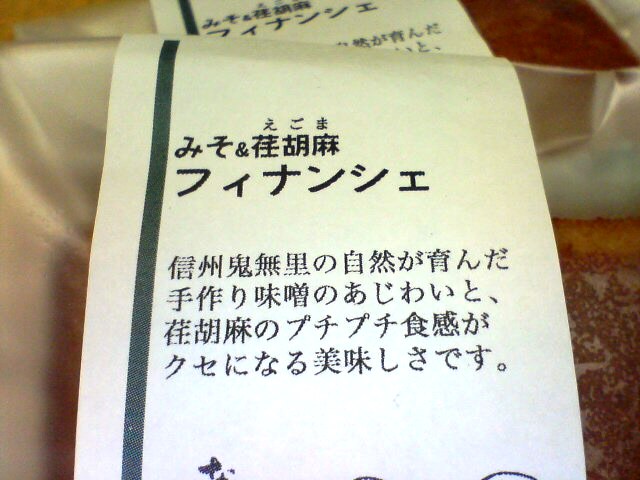 えごま
みそ&荏胡麻
フィナンシェ
然が育んだ
えごま
みそ&荏胡麻
フィナンシェ
信州鬼無里の自然が育んだ
手作り味噌のあじわいと、
荏胡麻のプチプチ食感が
クセになる美味しさです。